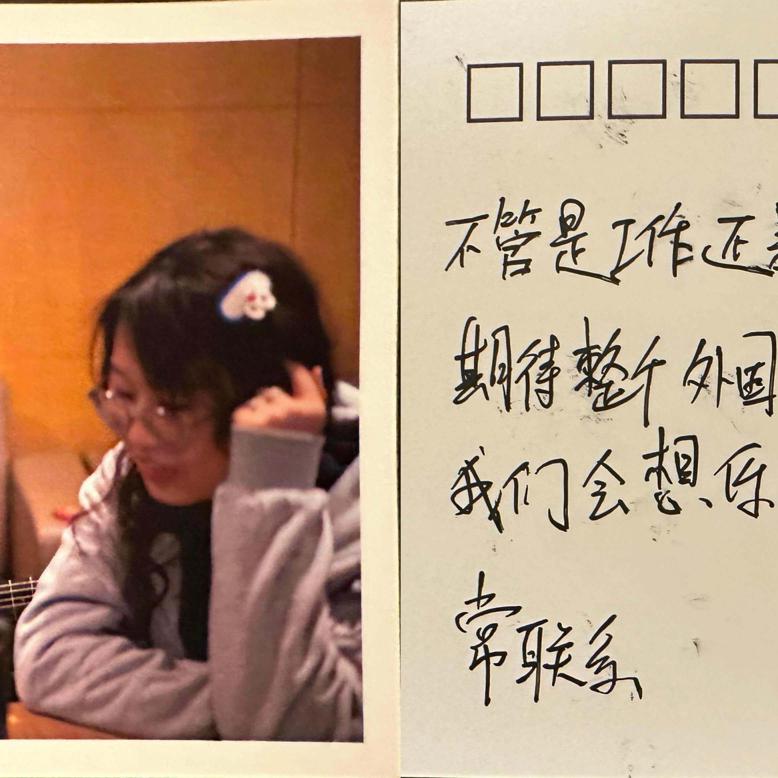 不管是工作还是
期待整个外国
我们会想你
常联系